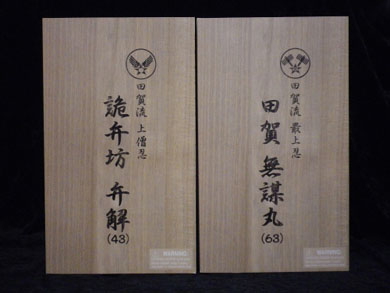 田賀流 上僧忍
詭弁坊 弁解
(43)
WARNING
田賀流 最上忍
田賀 無謀丸
(63)
WARNING